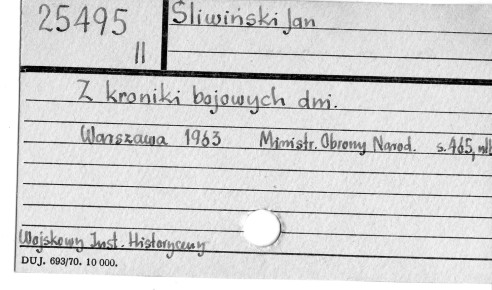 25495
II
Śliwiński Jan
Z kroniki bojowych dni.
Warszawa 1963 Ministr. Obrony Narod. s. 465, nlb
Wojskowy Inst. Historyczny
DUJ. 693/70. 10 000.